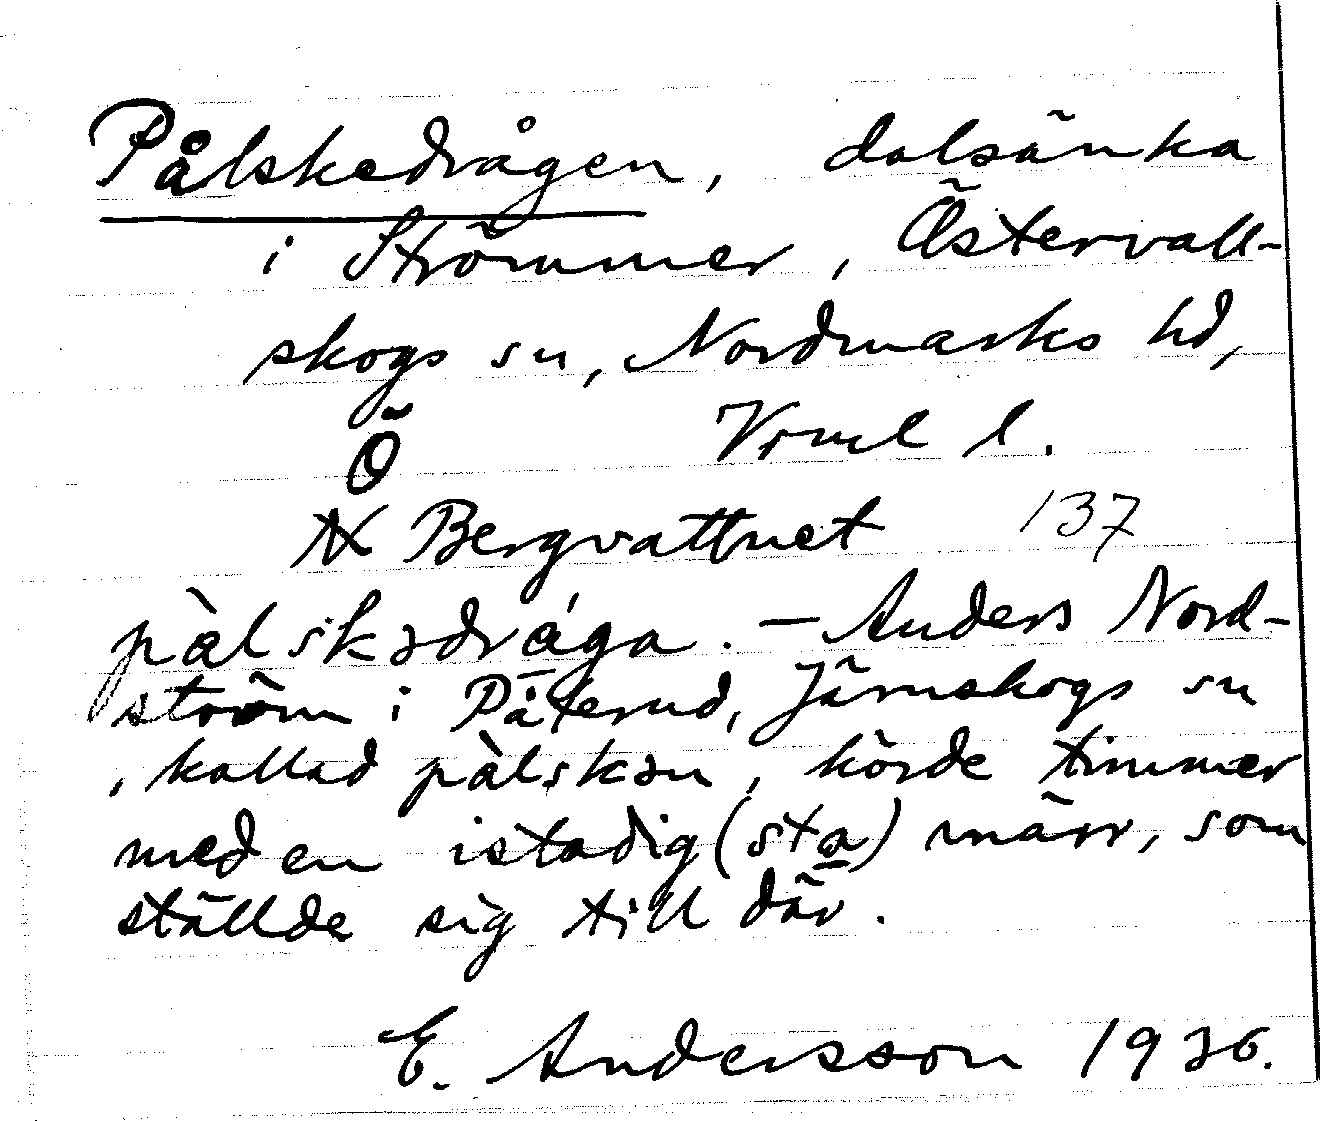 Pålskedrågen, dalsänka
i Strömmer, Östervall-
skogs sn, Nordmarks hd,
Ö Vrml l.
N Bergvattnet 137
pàlskədrága. – Anders Nord-
ström i Påterud, Järnskogs sn
, kallad pàlskən, körde timmer
med en istadig (sta) märr, som
ställde sig till där.
E. Andersson 1936.